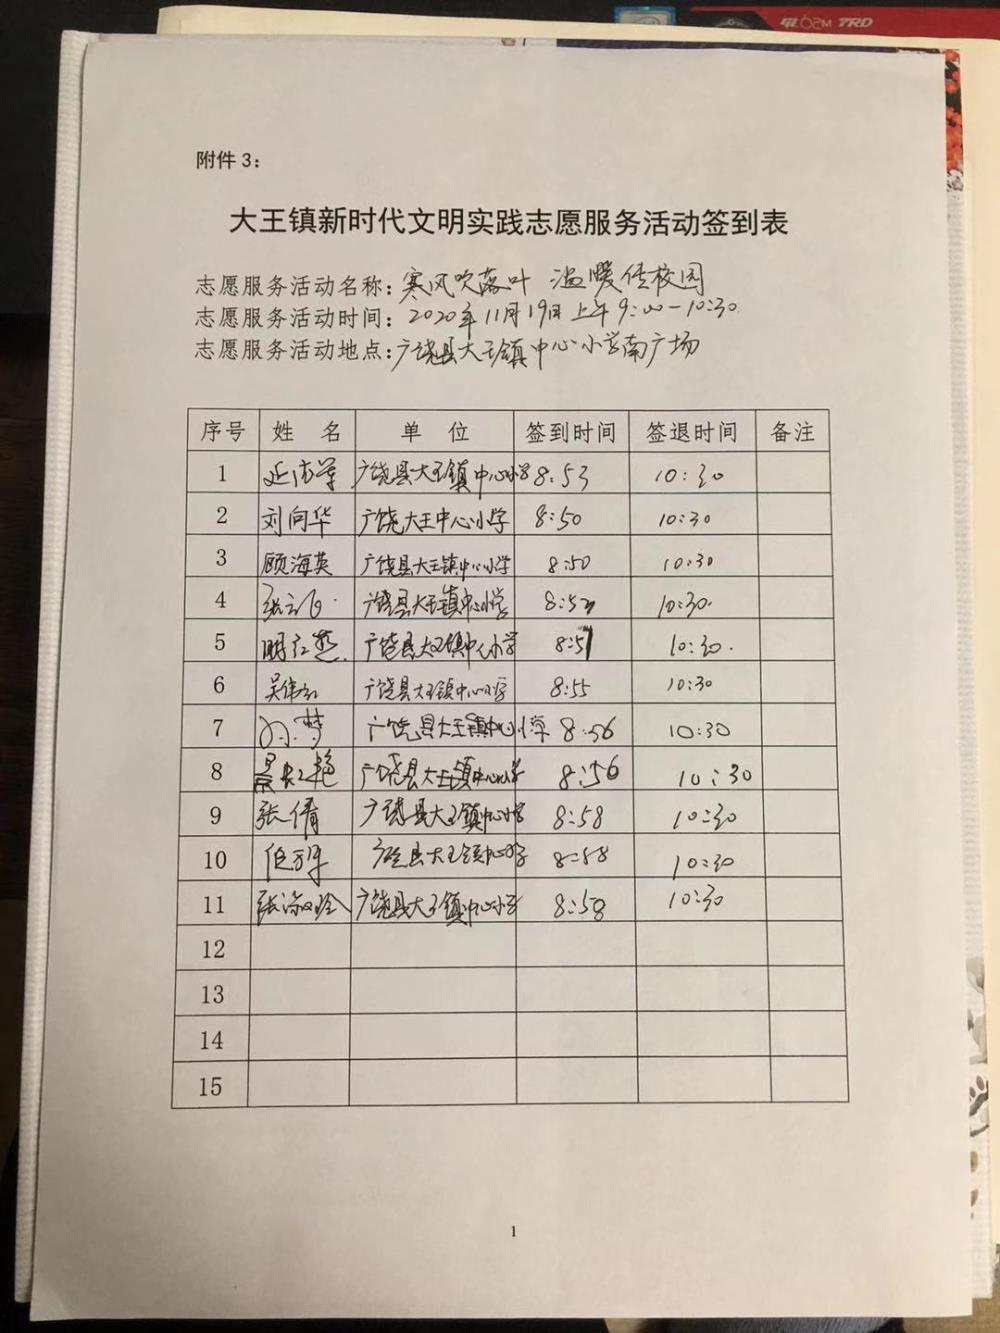 TRD
附件 3：
大王镇新时代文明实践志愿服务活动签到表
志愿服务活动名称：寒风吹落叶 温暖传校园
志愿服务活动时间：2020年11月19日上午9:00-10:30
志愿服务活动地点：广饶县大王镇中心小学南广场
序号 姓 名 单 位 签到时间 签退时间 备注
1 广饶县大王镇中心小学 8:53 10:30
2 刘向华 广饶大王中心小学 8:50 10:30
3 顾海英 广饶县大王镇中心小学 8:50 10:30
4 广饶县大王镇中心小学 10:30
5 广饶县大王镇中心小学 8:51 10:30
6 广饶县大王镇中心小学 8:55 10:30
7 孙梦 广饶县大王镇中心小学 8:56 10:30
8 广饶县大王镇中心小学 8:56 10:30
9 张倩 广饶县大王镇中心小学 8:58 10:30
10 广饶县大王镇中心小学 8:58 10:30
11 广饶县大王镇中心小学 8:58 10:30
12
13
14
15
1